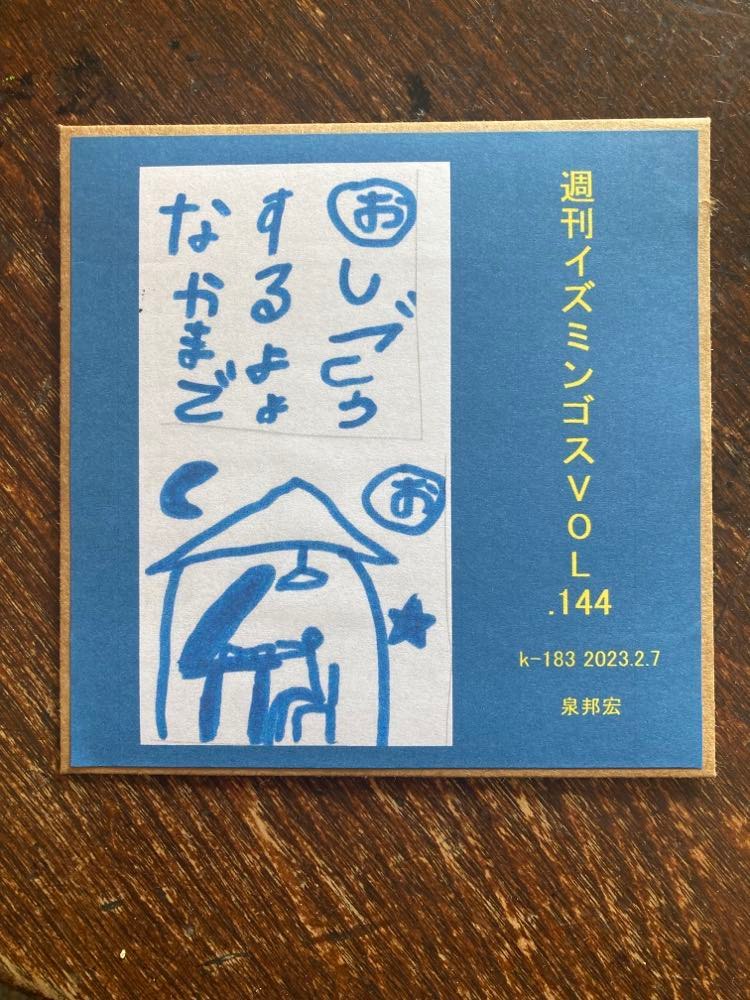 週刊イズミンゴスVOL.144
k-183 2023.2.7
泉邦宏
おしごと
するよよ
なかまで
お